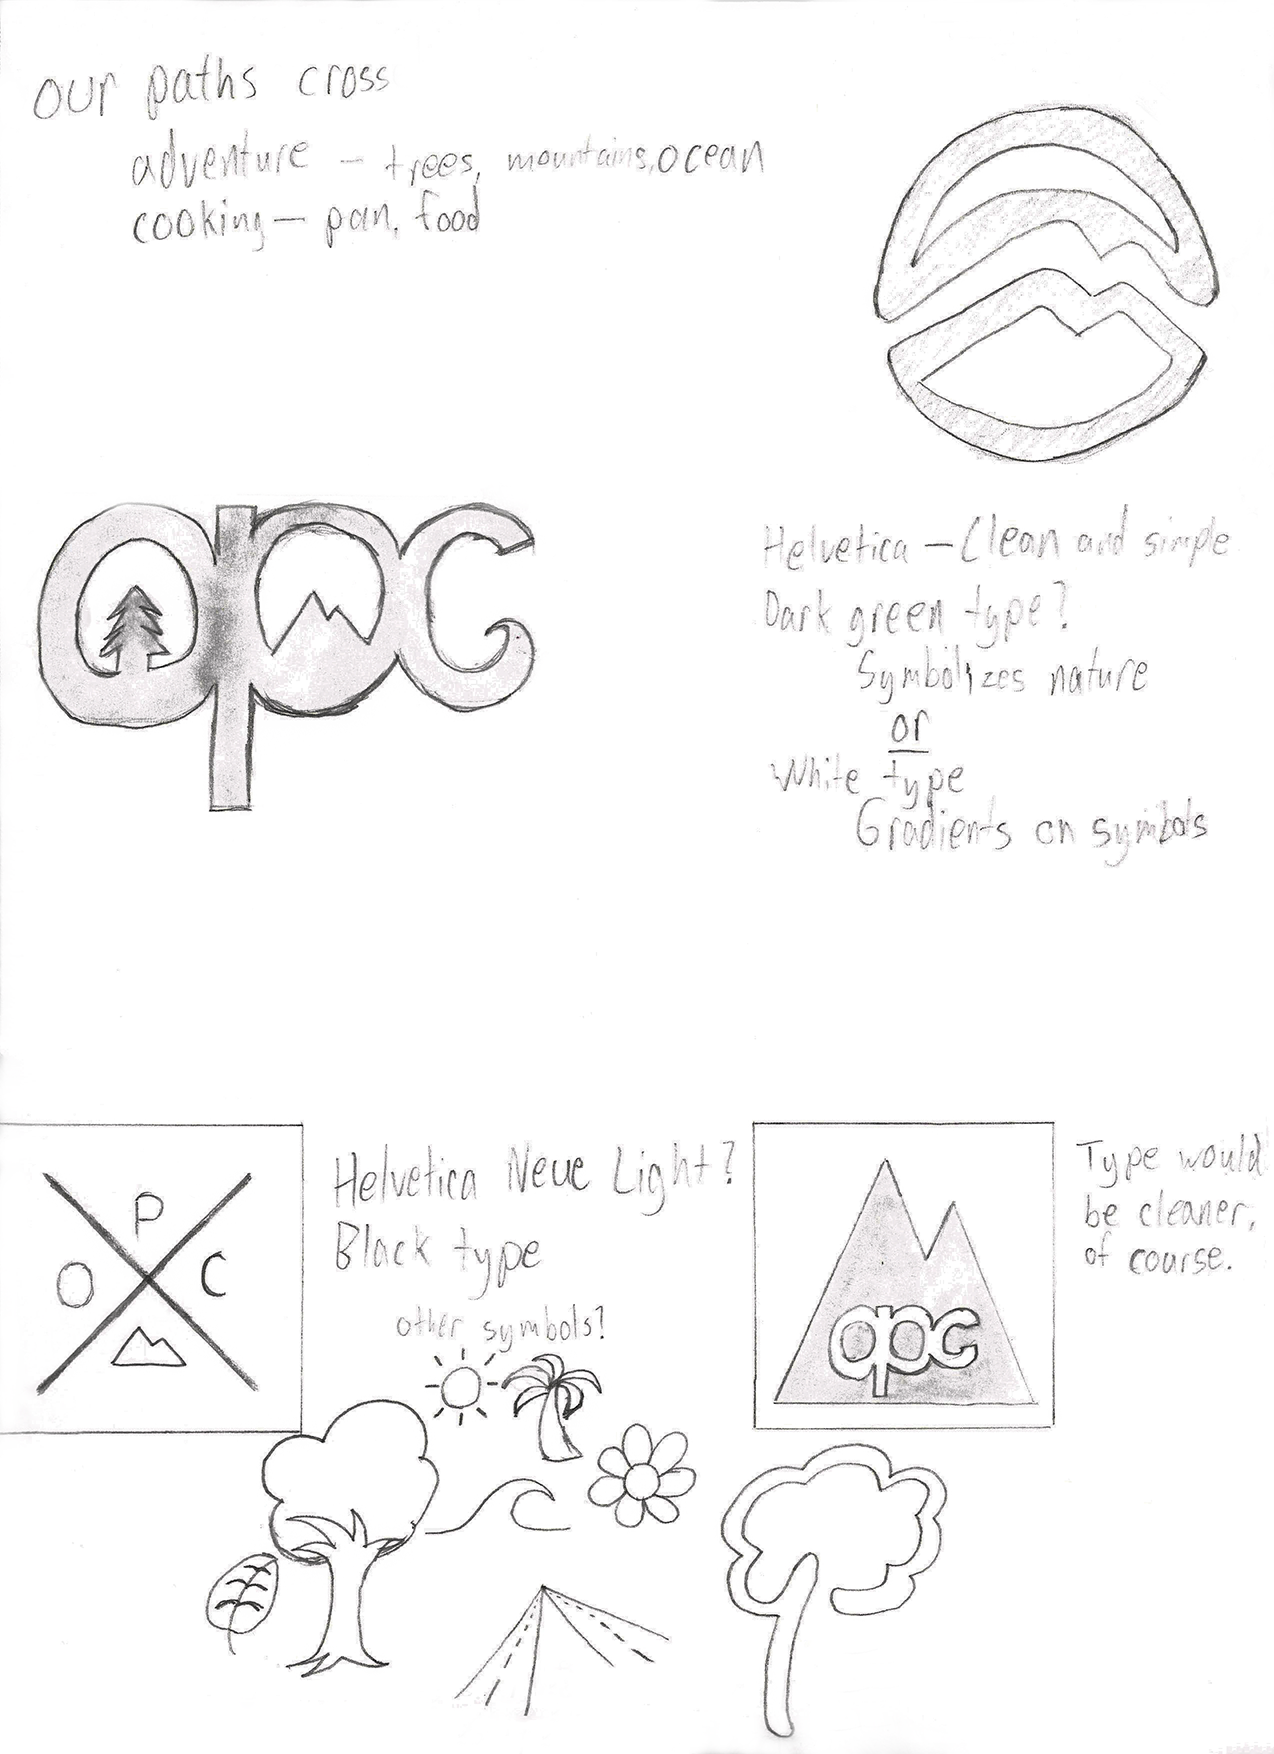 our paths cross
adventure – trees, mountains, ocean
cooking – pan, food
opc
Helvetica – Clean and simple
Dark green type?
Symbolizes nature
or
White type
Gradients on symbols
P
O C
Helvetica Neue Light?
Black type
other symbols?
opc
Type would
be cleaner,
of course.